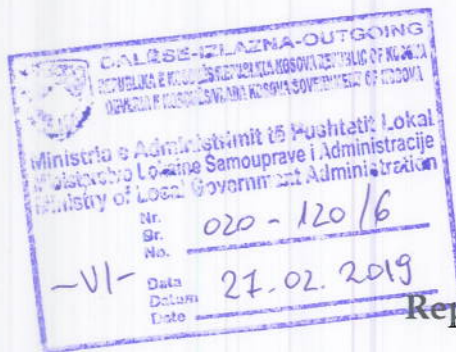 DALËSE-IZLAZNA-OUTGOING
REPUBLIKA E KOSOVËS REPUBLIKA KOSOVA REPUBLIC OF KOSOVA
QEVERIA E KOSOVËS VLADA KOSOVA GOVERNMENT OF KOSOVA
Ministria e Administrimit të Pushtetit Lokal
Ministarstvo Lokalne Samouprave i Administracije
Ministry of Local Government Administration
Nr.
Br.
No.
020-120/6
-VI-
Data
Datum
Date
27.02.2019
Rep